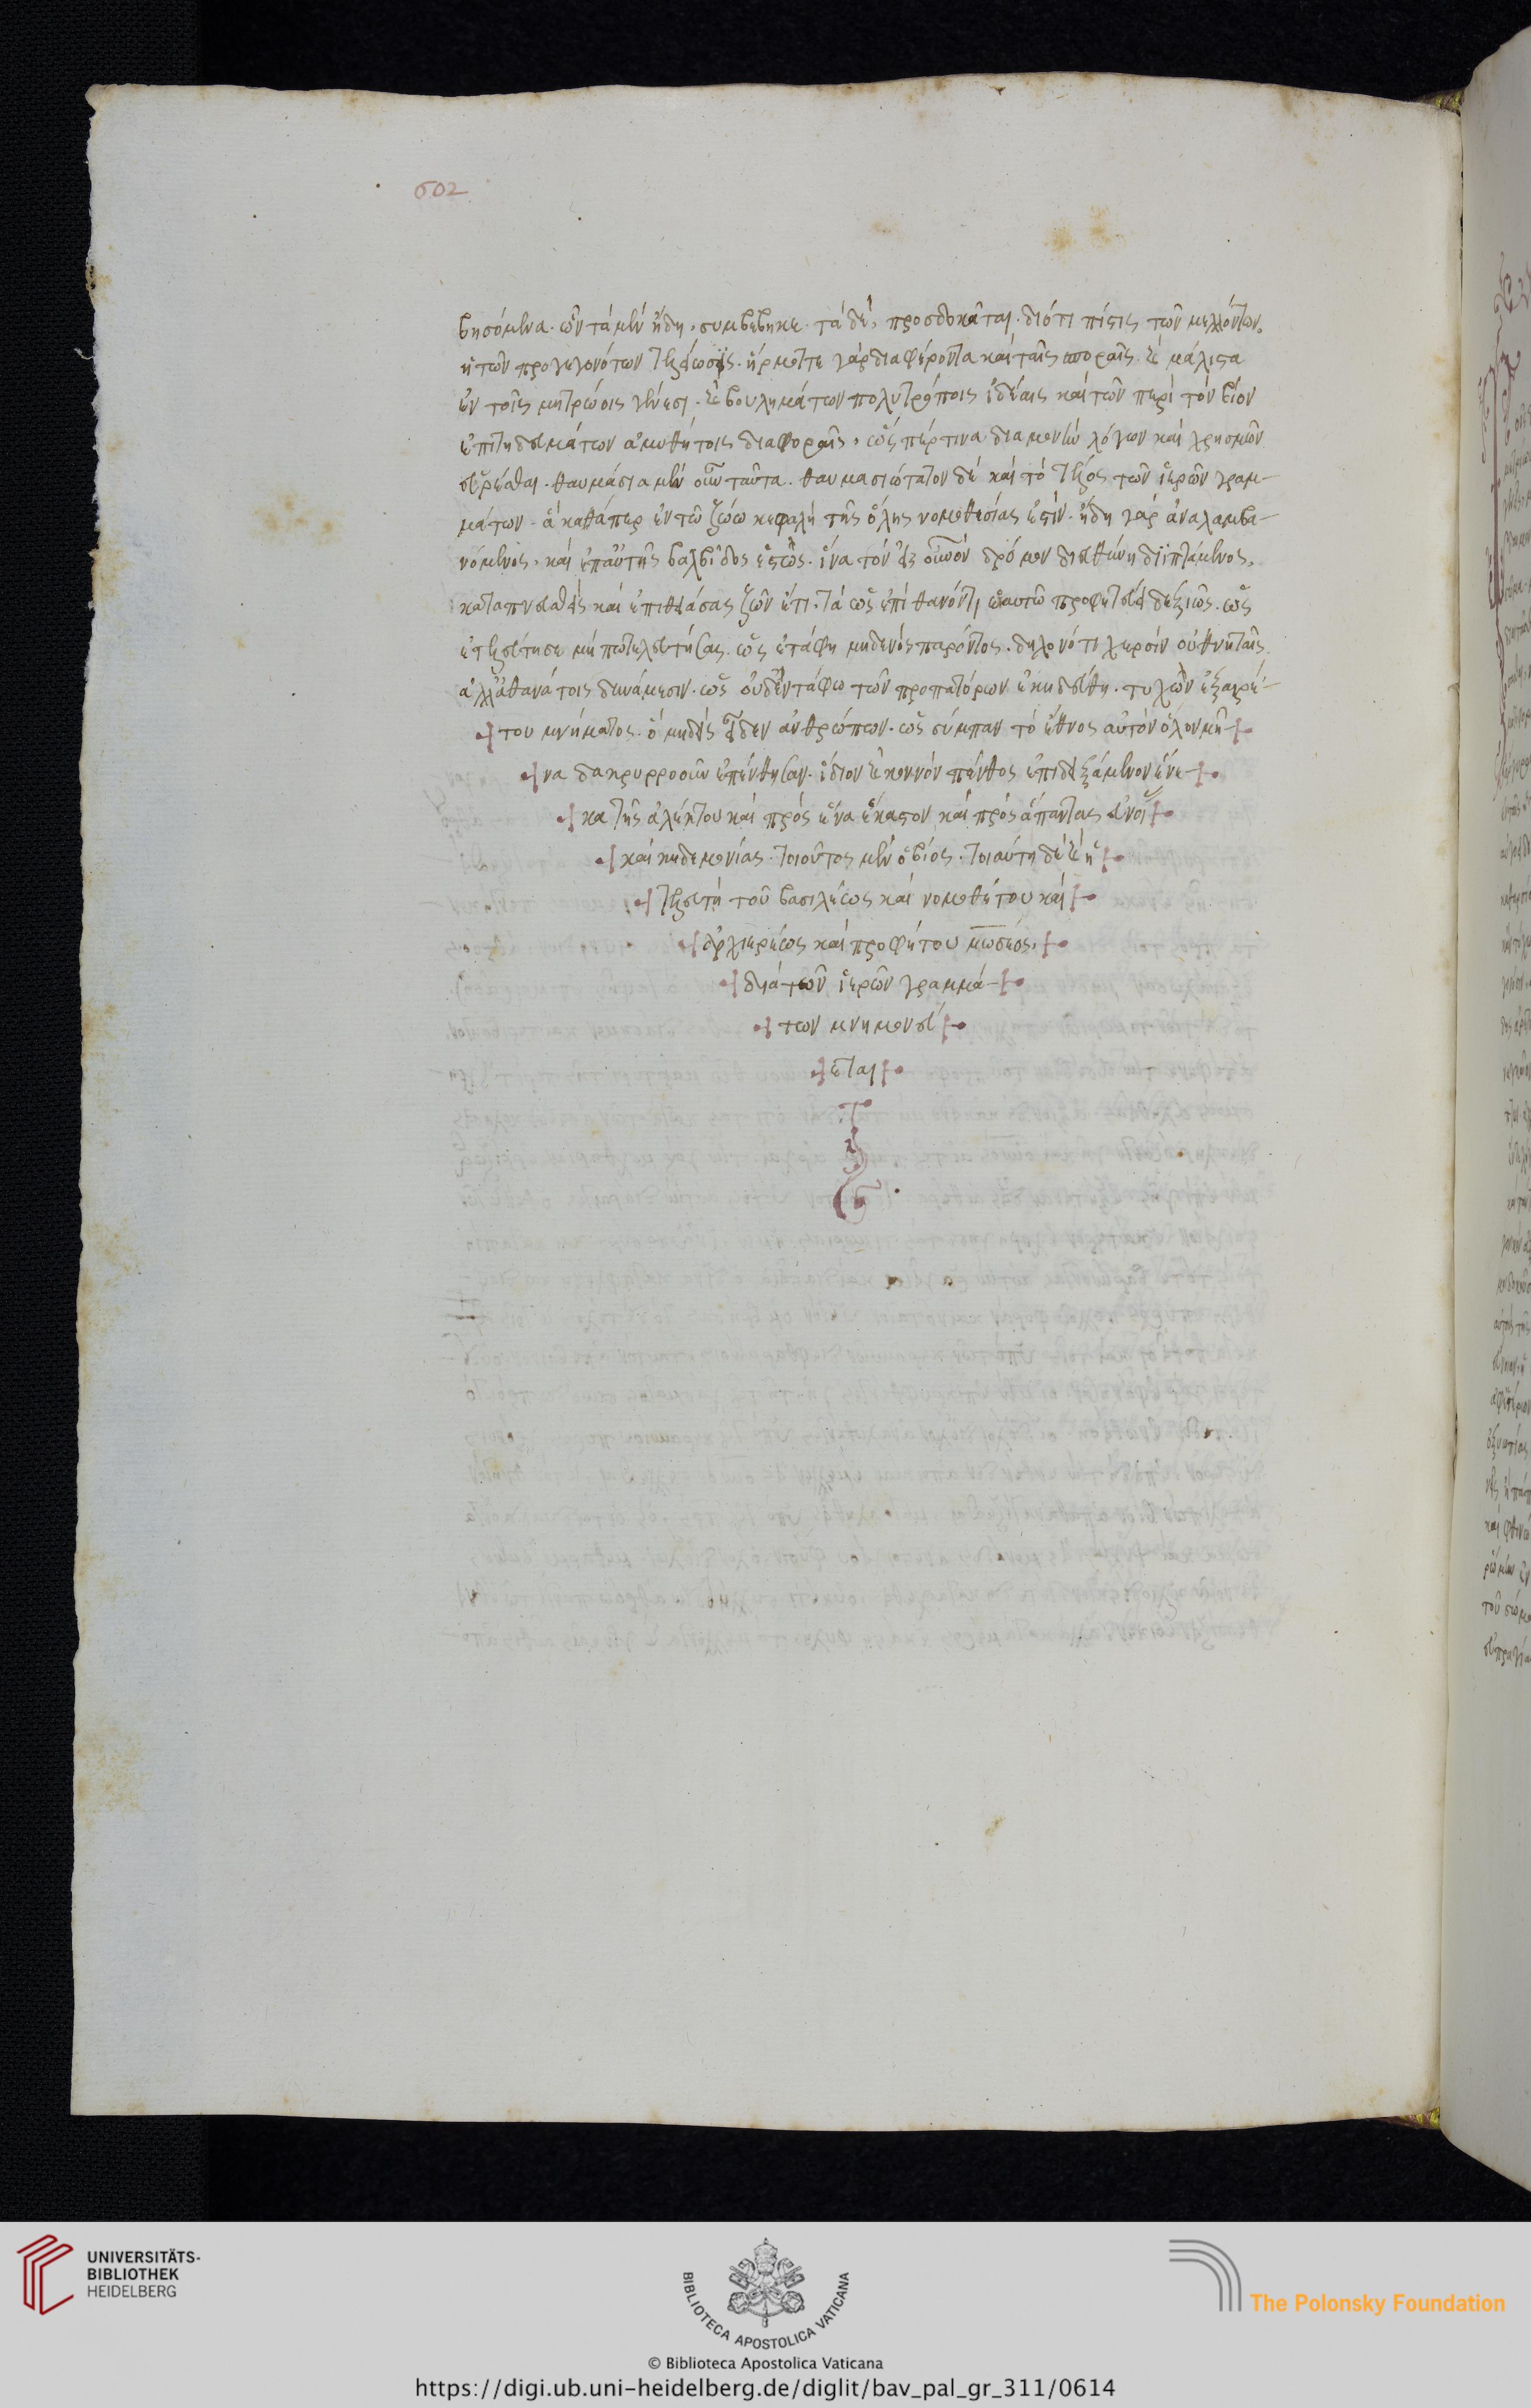 602
βησόμενα. ὧν τὰ μὲν ἤδη, συμβέβηκε. τὰ δὲ, προσδοκᾶται. διότι πίστις τῶν μελλόντων,
ἡ τῶν προγεγονότων τελείωσις. ἥρμοττε γὰρ διαφέροντα καὶ ταῖς σποραῖς καὶ μάλιστα
ἐν τοῖς μητρώοις γένεσι. καὶ βουλημάτων πολυτρόποις ἰδέαις καὶ τῶν περὶ τὸν βίον
ἐπιτηδευμάτων ἀμυθήτοις διαφοραῖς, ὥσπερ τινα διανομὴν λόγων καὶ χρησμῶν
εὑρέσθαι. θαυμάσια μὲν οὖν ταῦτα. θαυμασιώτατον δὲ καὶ τὸ τέλος τῶν ἱερῶν γραμ-
μάτων. ὃ καθάπερ ἐν τῷ ζώῳ κεφαλὴ τῆς ὅλης νομοθεσίας ἐστίν. ἤδη γὰρ ἀναλαμβα-
νόμενος, καὶ ἐπ' αὐτῆς βαλβῖδος ἑστὼς. ἵνα τὸν εἰς οὐρανὸν δρόμον διευθύνη διϊπτάμενος,
καταπνευσθεὶς καὶ ἐπιθειάσας ζῶν ἔτι, τὰ ὡς ἐπὶ θανόντι ἑαυτῷ προφητεύει δεξιῶς. ὡς
ἐτελεύτησε μήπω τελευτήσας. ὡς ἐτάφη μηδενὸς παρόντος. δηλονότι χερσὶν οὐ θνηταῖς
ἀλλ' ἀθανάτοις δυνάμεσιν. ὡς οὐδ' ἐν τάφω τῶν προπατόρων ἐκηδεύθη. τυχὼν ἐξαιρέ-
του μνήματος. ὃ μηδεὶς εἶδεν ἀνθρώπων. ὡς σύμπαν τὸ ἔθνος αὐτὸν ὅλον μῆ-
να δακρυρροοῦν ἐπένθησαν. ἴδιον καὶ κοινὸν πένθος ἐπιδειξάμενον ἕνε-
κα τῆς ἀλέκτου καὶ πρὸς ἕνα ἕκαστον καὶ πρὸς ἅπαντας εὐνοί
καὶ κηδεμονίας. τοιοῦτος μὲν ὁ βίος. τοιαύτη δὲ καὶ ἡ
τελευτὴ τοῦ βασιλέως καὶ νομοθέτου καὶ
ἀρχιερέως καὶ προφήτου μωσέως,
διὰ τῶν ἱερῶν γραμμά-
των μνημονεύ
εται
UNIVERSITÄTS-
BIBLIOTHEK
HEIDELBERG
BIBLIOTECA APOSTOLICA VATICANA
The Polonsky Foundation
© Biblioteca Apostolica Vaticana
https://digi.ub.uni-heidelberg.de/diglit/bav_pal_gr_311/0614